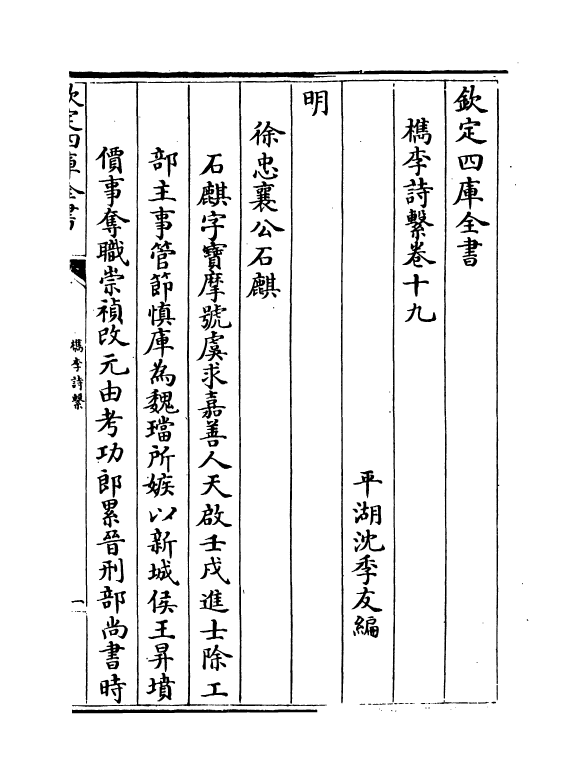 欽定四庫全書
檇李詩繫卷十九
平湖沈季友編
明
徐忠襄公石麒
石麒字寶摩號虞求嘉善人天啟壬戌進士除工
部主事管節慎庫為魏璫所嫉以新城侯王昇墳
價事奪職崇禎改元由考功郎累晉刑部尚書時
欽定四庫全書
檇李詩繫
一